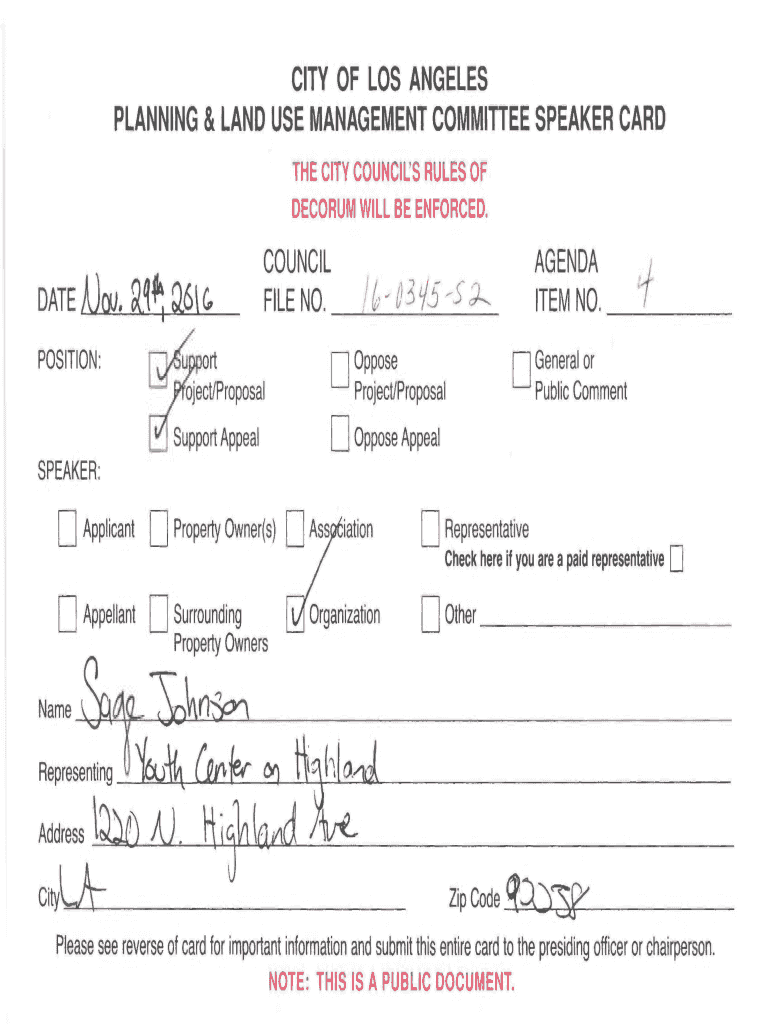 CITY OF LOS ANGELES
PLANNING & LAND USE MANAGEMENT COMMITTEE SPEAKER CARD
THE CITY COUNCIL'S RULES OF
DECORUM WILL BE ENFORCED.
DATE Nov. 29th, 2016 COUNCIL FILE NO. 16-0345-S2 AGENDA ITEM NO. 4
POSITION: Support Project/Proposal Oppose Project/Proposal General or Public Comment
Support Appeal Oppose Appeal
SPEAKER:
Applicant Property Owner(s) Association Representative
Check here if you are a paid representative
Appellant Surrounding Property Owners Organization Other
Name Sage Johnson
Representing Youth Center on Highland
Address 1220 N. Highland Ave
City LA Zip Code 90038
Please see reverse of card for important information and submit this entire card to the presiding officer or chairperson.
NOTE: THIS IS A PUBLIC DOCUMENT.